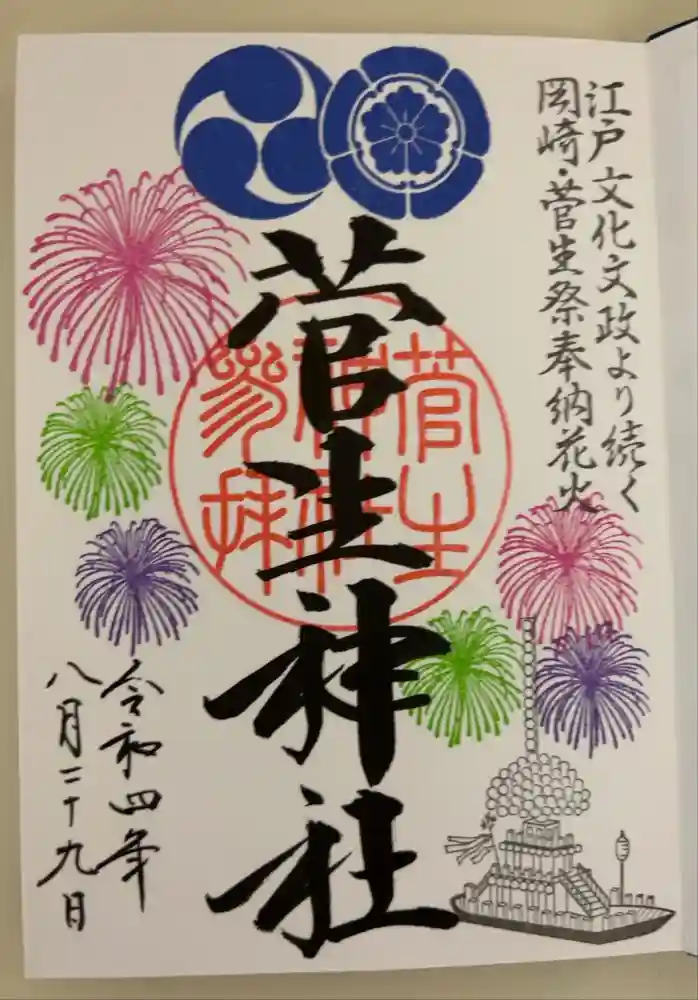 江戸文化文政より続く
岡崎・菅生祭奉納花火
菅生神社
菅生神社参拝
令和四年
八月二十九日